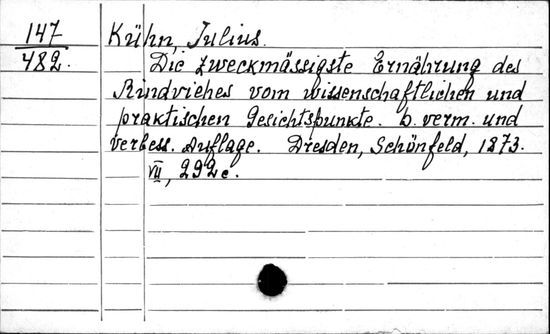 147 Kühn, Julius.
482. Die zweckmässigste Ernährung des
Rindviehes vom wissenschaftlichen und
praktischen Gesichtspunkte. 6. verm. und
verbess. Auflage. Dresden, Schönfeld, 1873.
VII, 292 c.